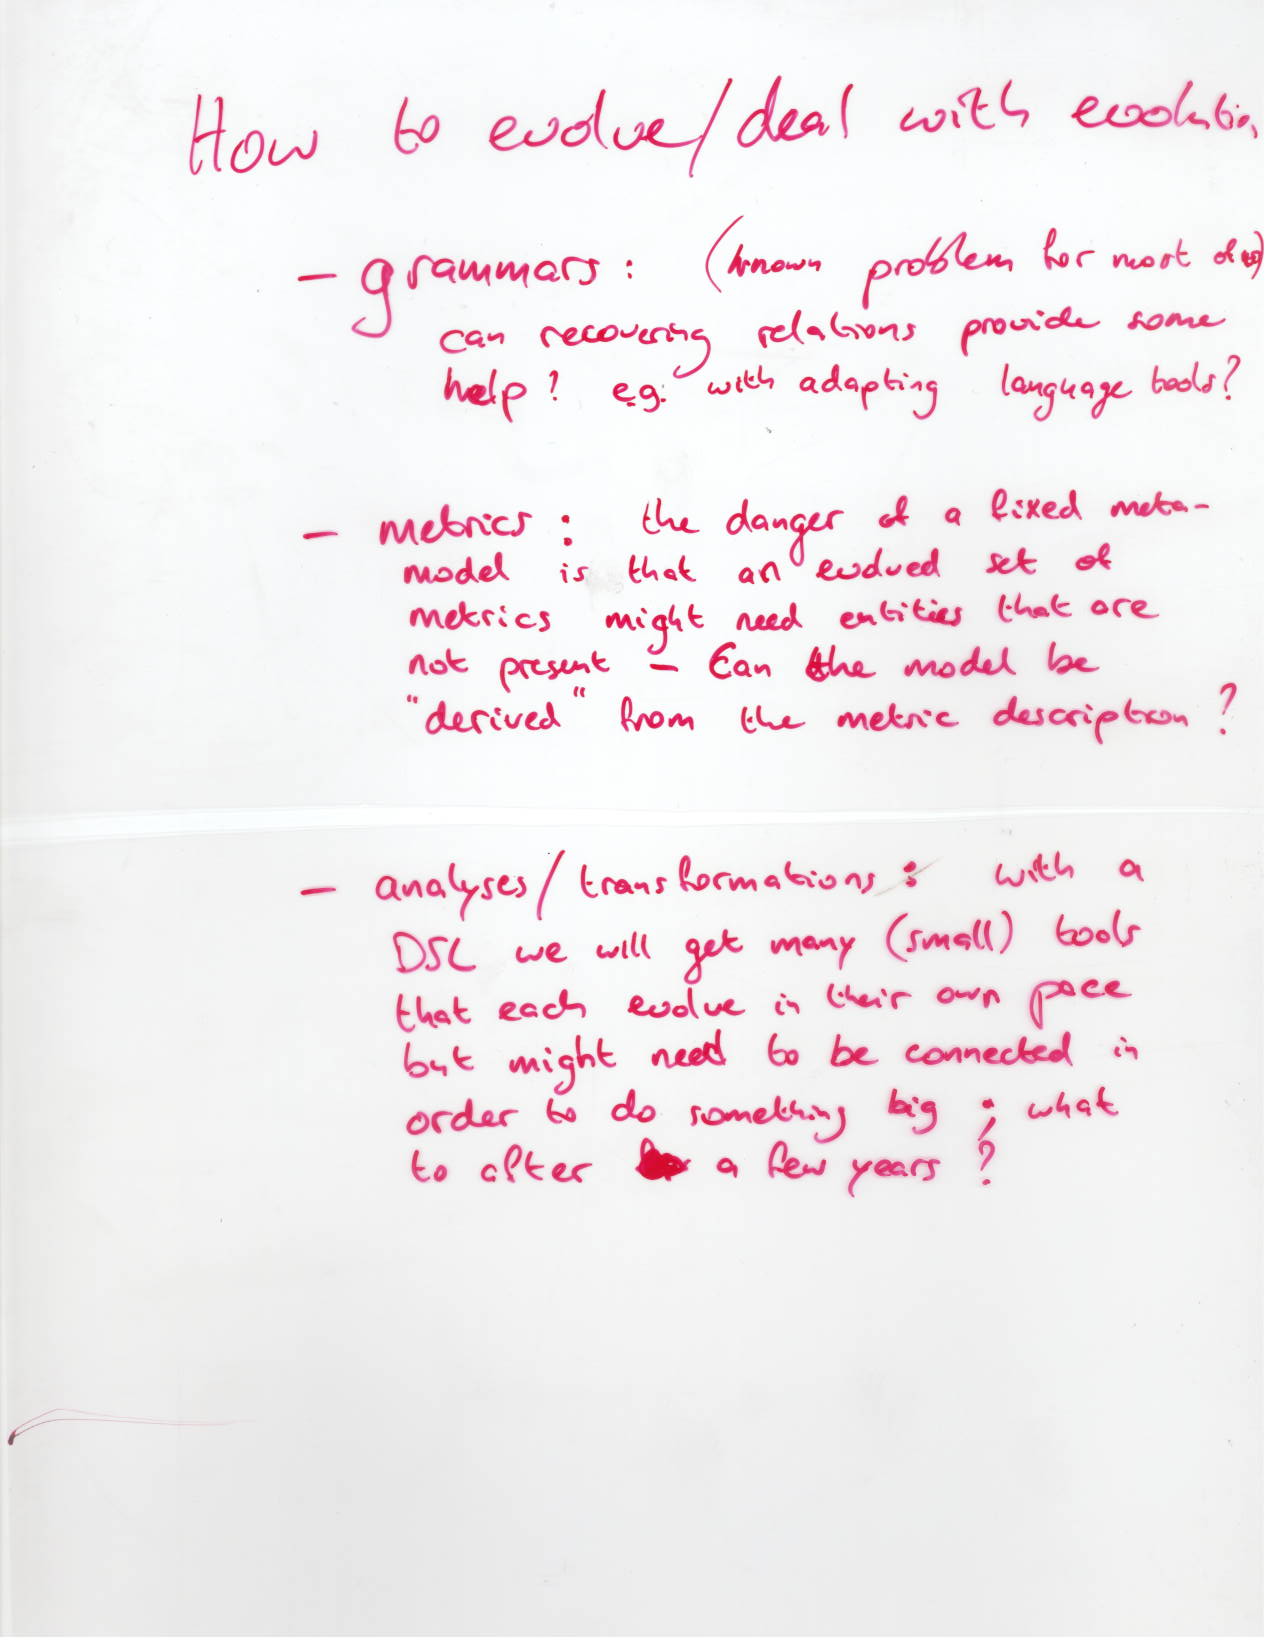 How to evolve/deal with evolution
- grammars: (known problem for most of us)
can recovering relations provide some
help? e.g. with adapting language tools?
- metrics: the danger of a fixed meta-
model is that an evolved set of
metrics might need entities that are
not present - Can the model be
"derived" from the metric description?
- analyses/transformations: with a
DSL we will get many (small) tools
that each evolve in their own pace
but might need to be connected in
order to do something big; what
to after a few years?